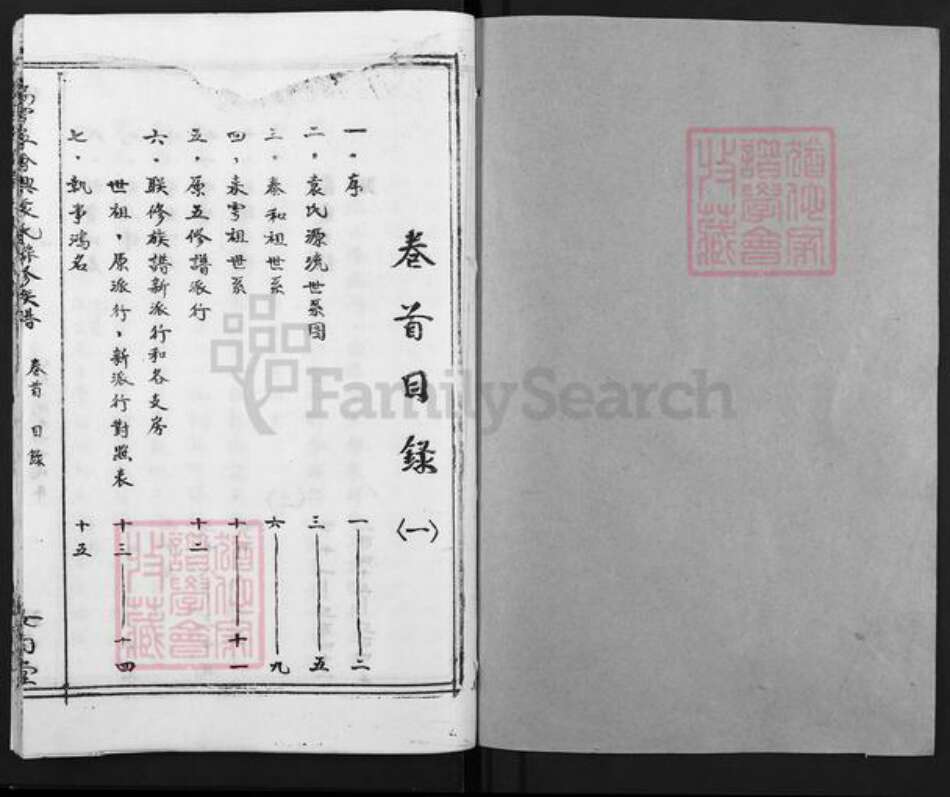 卷首目録〈一〉
一．序 一——二
二．袁氏源流世系图 三——五
三．泰和祖世系 六——九
四，永寧祖世系 十——十一
五．原五修譜派行 十二
六．联修族譜新派行和各支房
世祖，原派行，新派行對照表 十三——十四
七．執事鴻名 十五
卷首 目録
FamilySearch
譜學會
收藏
譜學會
收藏